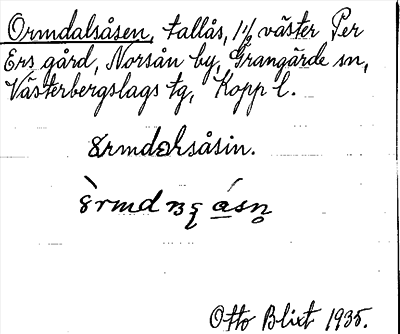 Ormdalsåsen, tallås, 1½ väster Per
Ers gård, Norsån by, Grangärde sn,
Västerbergslags tg, Kopp l.
Ormdalsåsin.
Otto Blixt 1935.